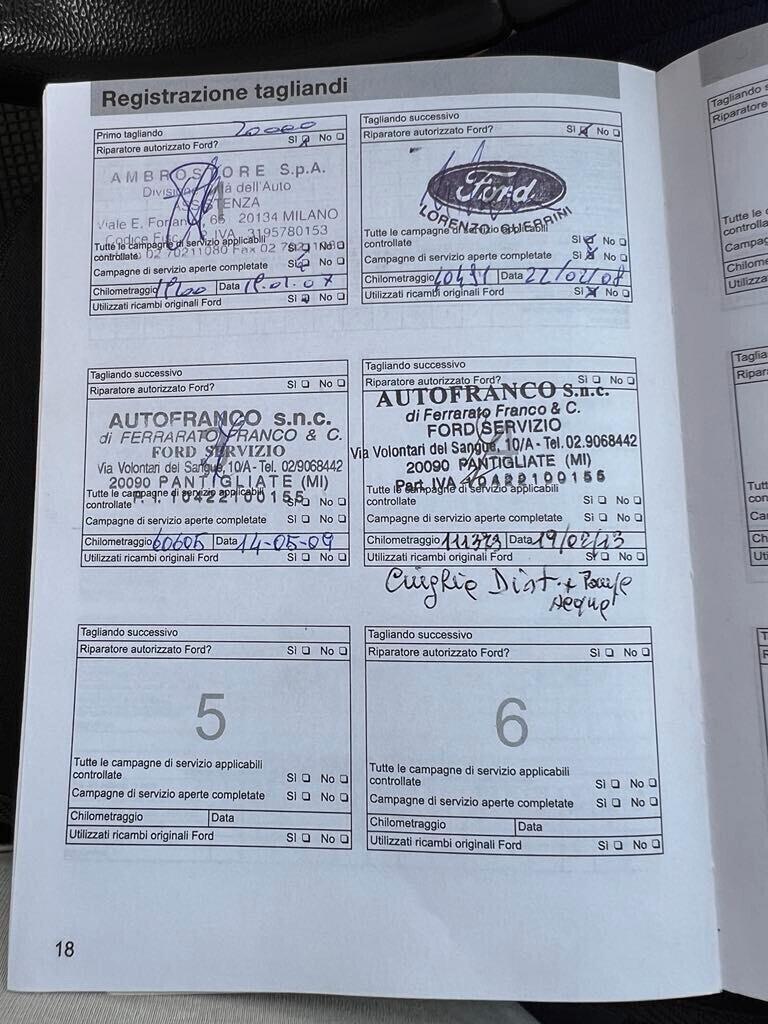 Registrazione tagliandi
Primo tagliando 20000
Riparatore autorizzato Ford? Sì No
AMBROSTORE S.p.A.
dell'Auto
ASSISTENZA
Viale E. 65 20134 MILANO
IVA 3195780153
Tutte le campagne di servizio applicabili
controllate Sì No
02 70211080 Fax 02
Campagne di servizio aperte completate Sì No
Chilometraggio Data 19.01.07
Utilizzati ricambi originali Ford Sì No
Tagliando successivo
Riparatore autorizzato Ford? Sì No
Ford
LORENZO GUERRINI
Tutte le campagne di servizio applicabili
controllate Sì No
Campagne di servizio aperte completate Sì No
Chilometraggio 40491 Data 22/02/08
Utilizzati ricambi originali Ford Sì No
Tagliando successivo
Riparatore autorizzato Ford? Sì No
AUTOFRANCO s.n.c.
di FERRARATO FRANCO & C.
FORD SERVIZIO
Via Volontari del Sangue, 10/A - Tel. 02/9068442
20090 PANTIGLIATE (MI)
P. I. 10422100155
Tutte le campagne di servizio applicabili
controllate Sì No
Campagne di servizio aperte completate Sì No
Chilometraggio 60605 Data 14-05-09
Utilizzati ricambi originali Ford Sì No
Tagliando successivo
Riparatore autorizzato Ford? Sì No
AUTOFRANCO s.n.c.
di Ferrarato Franco & C.
FORD SERVIZIO
Via Volontari del Sangue, 10/A - Tel. 02.9068442
20090 PANTIGLIATE (MI)
Part. IVA 10422100155
Tutte le campagne di servizio applicabili
controllate Sì No
Campagne di servizio aperte completate Sì No
Chilometraggio 111373 Data 19/02/13
Utilizzati ricambi originali Ford Sì No
Cinghie Dist. +
Tagliando successivo
Riparatore autorizzato Ford? Sì No
5
Tutte le campagne di servizio applicabili
controllate Sì No
Campagne di servizio aperte completate Sì No
Chilometraggio Data
Utilizzati ricambi originali Ford Sì No
Tagliando successivo
Riparatore autorizzato Ford? Sì No
6
Tutte le campagne di servizio applicabili
controllate Sì No
Campagne di servizio aperte completate Sì No
Chilometraggio Data
Utilizzati ricambi originali Ford Sì No
18
Tagliando
Riparatore
Tutte le